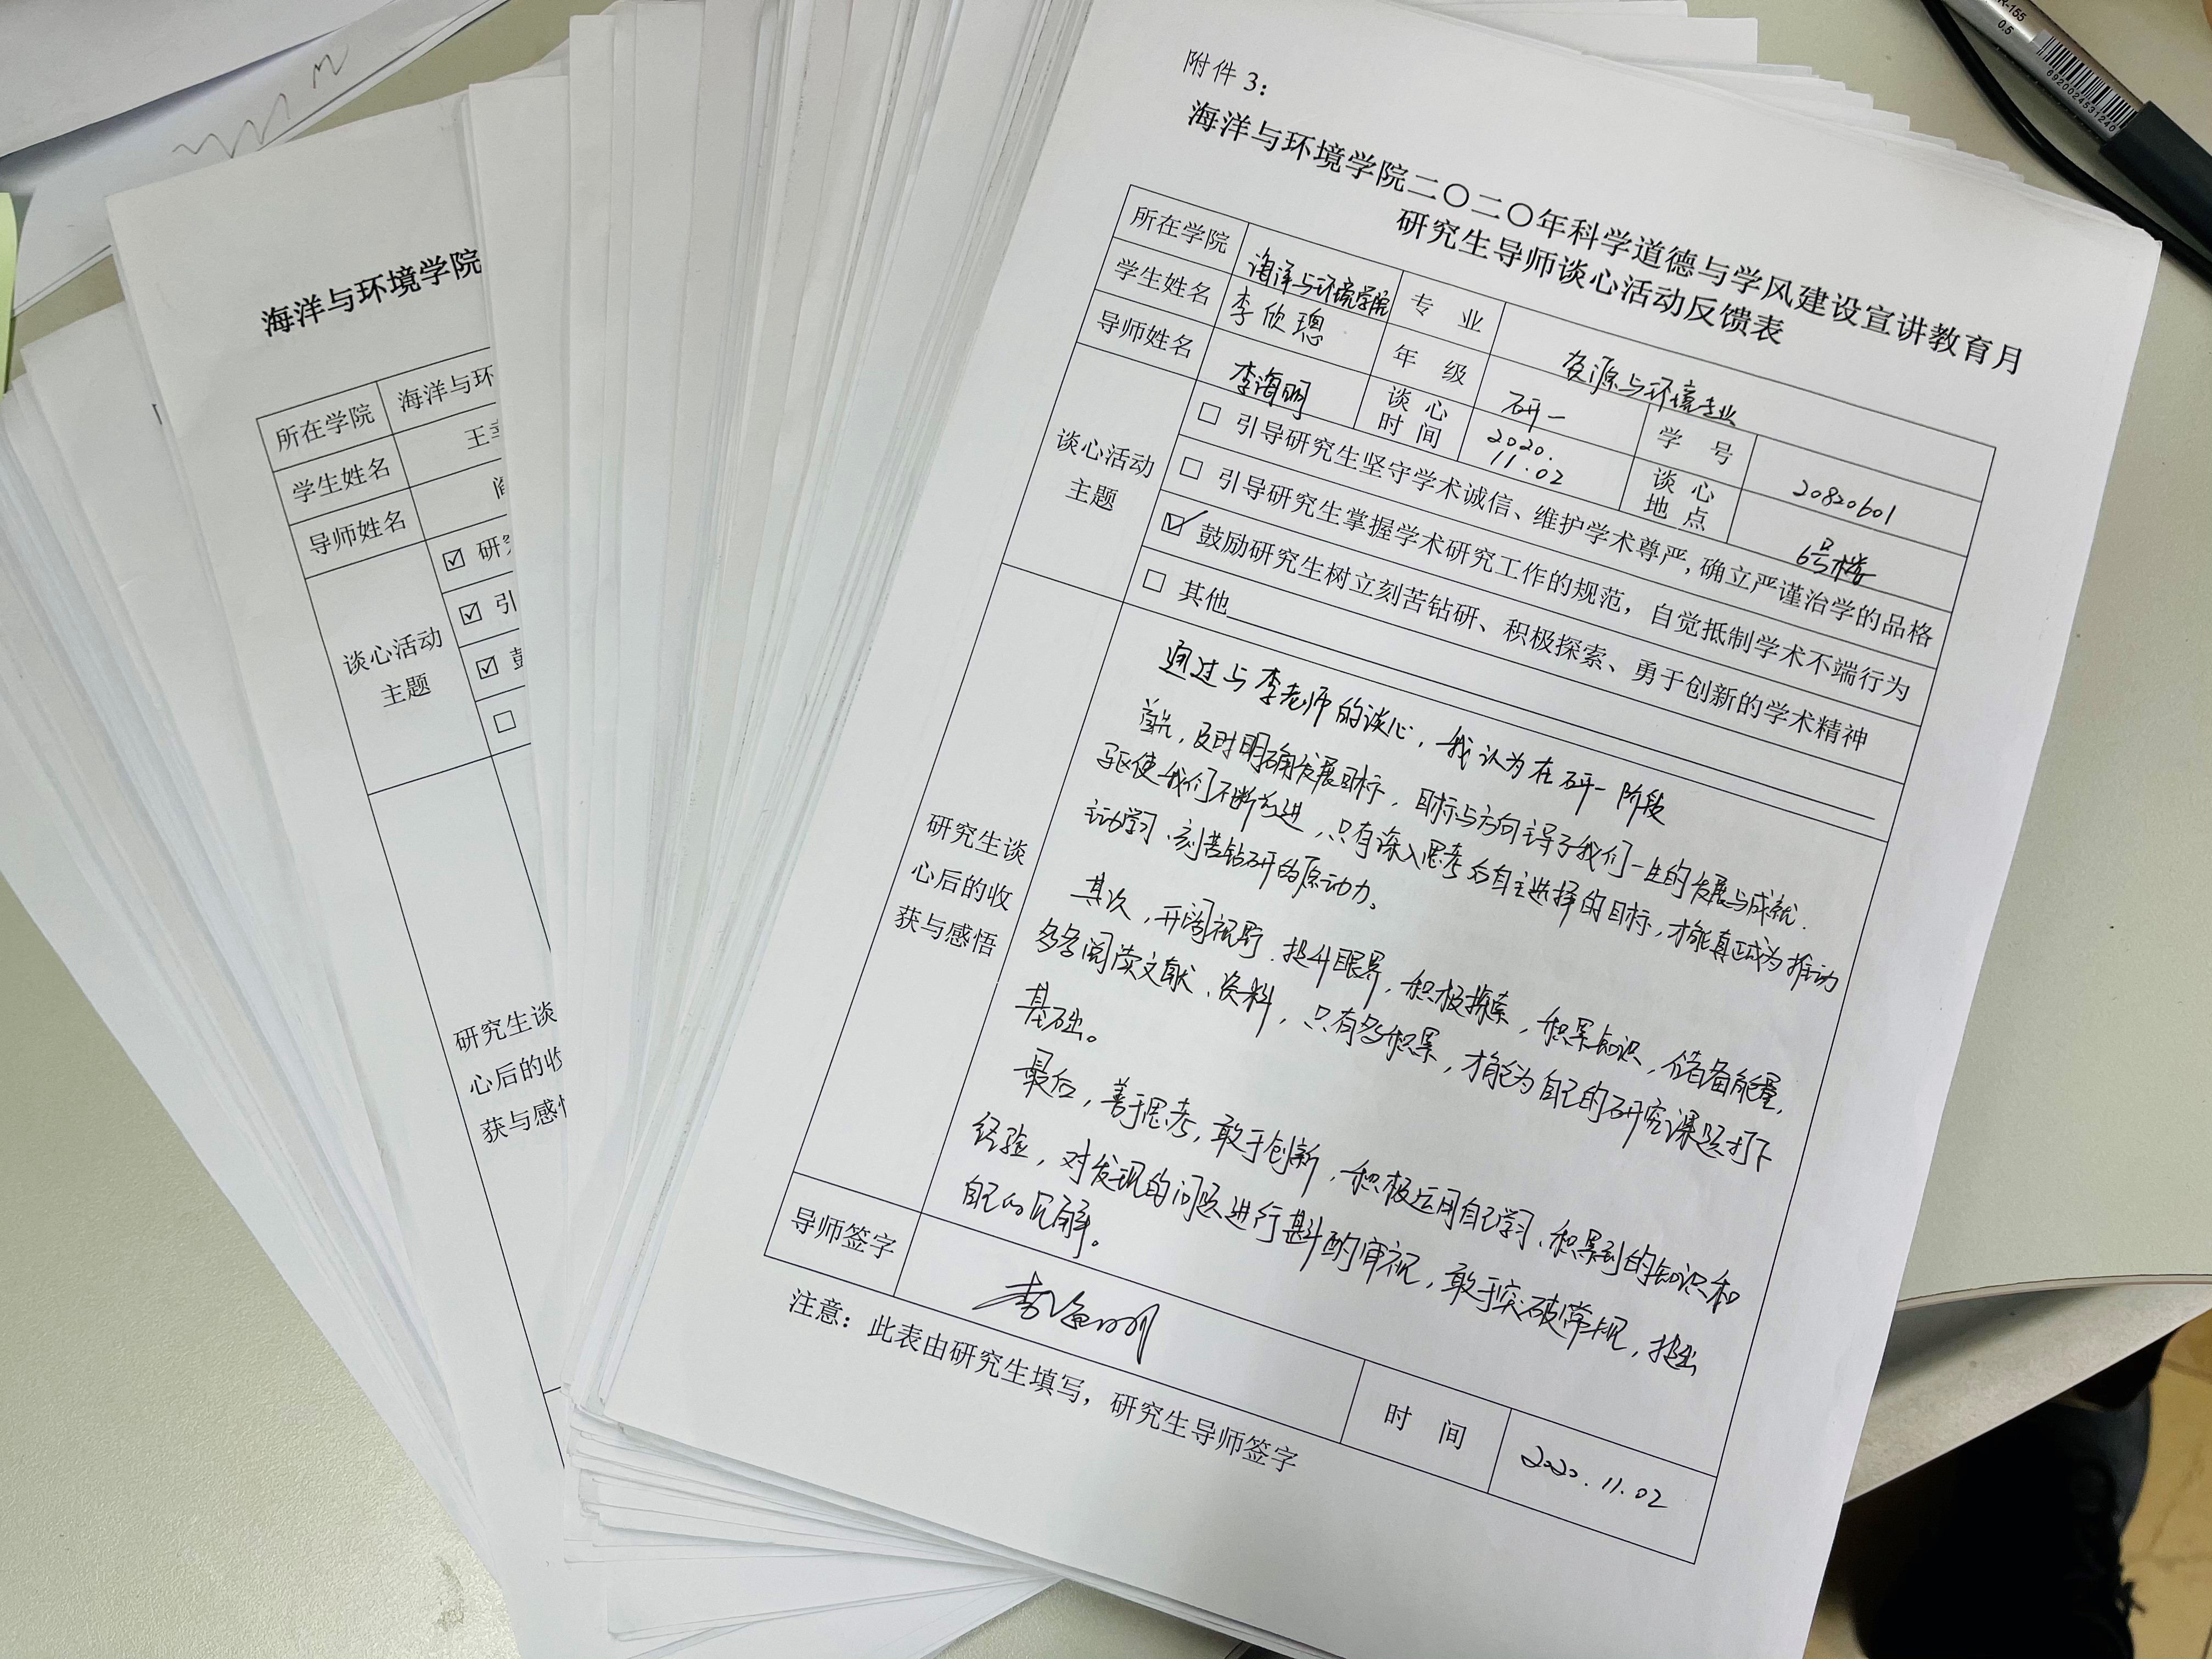 附件 3：
海洋与环境学院二〇二〇年科学道德与学风建设宣讲教育月
研究生导师谈心活动反馈表
所在学院 海洋与环境学院 专 业 资源与环境专业
学生姓名 李欣璁 年 级 研一 学 号 20820601
导师姓名 李海明 谈心时间 2020.11.02 谈心地点 6号楼
谈心活动
主题
□ 引导研究生坚守学术诚信、维护学术尊严，确立严谨治学的品格
□ 引导研究生掌握学术研究工作的规范，自觉抵制学术不端行为
☑ 鼓励研究生树立刻苦钻研、积极探索、勇于创新的学术精神
□ 其他
研究生谈
心后的收
获与感悟
通过与李老师的谈心，我认为在研一阶段
首先，及时明确发展目标，目标与方向主导了我们一生的发展与成就.
驱使我们不断前进，只有深入思考后自主选择的目标，才能真正成为推动
主动学习、刻苦钻研的原动力。
其次，开阔视野、提升眼界，积极探索，积累知识，储备能量，
多多阅读文献、资料，只有多积累，才能为自己的研究课题打下
基础。
最后，善于思考，敢于创新，积极运用自己学习、积累到的知识和
经验，对发现的问题进行斟酌审视，敢于突破常规，提出
自己的见解。
导师签字 李海明 时 间 2020.11.02
注意：此表由研究生填写，研究生导师签字
海洋与环境学院
所在学院 海洋与环
学生姓名 王
导师姓名
谈心活动
主题
☑ 研
☑ 引
☑
□
研究生谈
心后的收
获与感
R-155
0.5
6920024531240